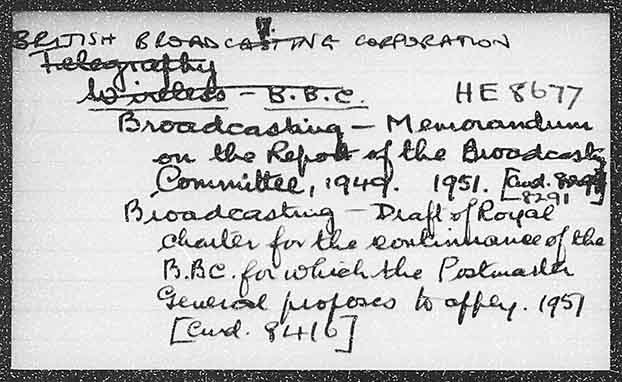 BRITISH BROADCASTING CORPORATION
Telegraphy
Wireless - B.B.C. HE 8677
Broadcasting - Memorandum
on the Report of the Broadcastg
Committee, 1949. 1951. [Cmd.
8291
Broadcasting - Draft of Royal
charter for the continuance of the
B.BC. for which the Postmaster
General proposes to apply. 1951
[Cmd. 8416]